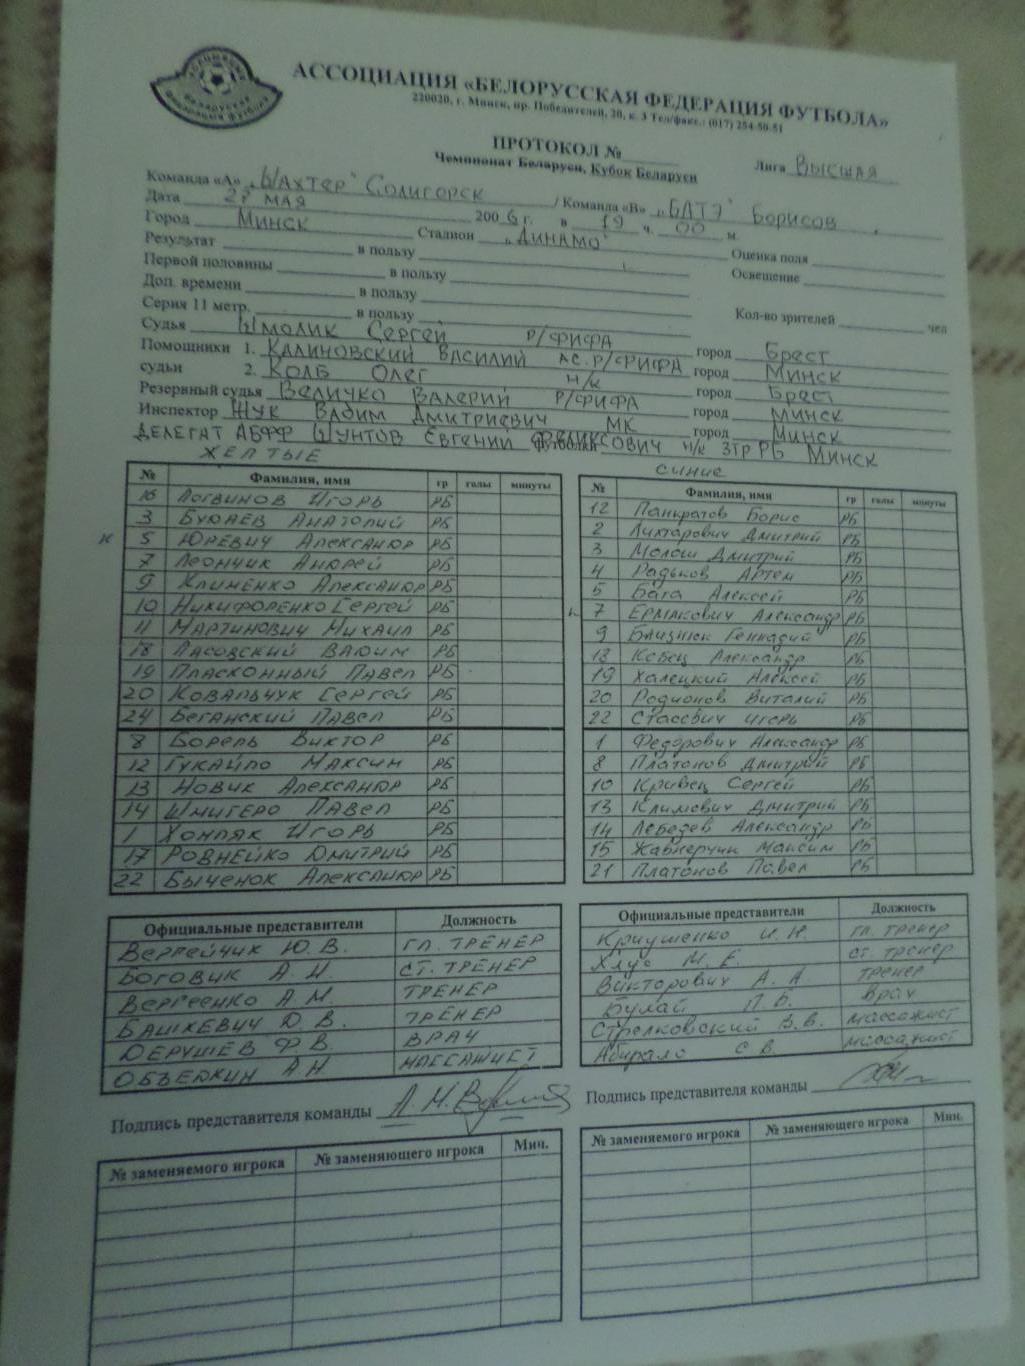 АССОЦИАЦИЯ «БЕЛОРУССКАЯ ФЕДЕРАЦИЯ ФУТБОЛА»
220020, г. Минск, пр. Победителей, 20, к. 3 Тел/факс.: (017) 254-50-51
ПРОТОКОЛ №
Чемпионат Беларуси, Кубок Беларуси
Лига ВЫСШАЯ
Команда «А» „ШАХТЕР" СОЛИГОРСК / Команда «В» „БАТЭ" БОРИСОВ
Дата МАЯ 2006 г. в 19 ч. 00 м.
Город МИНСК Стадион „ДИНАМО"
Результат в пользу Оценка поля
Первой половины в пользу Освещение
Доп. времени в пользу
Серия 11 метр. в пользу Кол-во зрителей чел
Судья ШМОЛИК СЕРГЕЙ Р/ФИФА город БРЕСТ
Помощники 1. КАЛИНОВСКИЙ ВАСИЛИЙ АС.Р/ФИФА город МИНСК
судьи 2. КОЛБ ОЛЕГ Н/К город БРЕСТ
Резервный судья ВЕЛИЧКО ВАЛЕРИЙ Р/ФИФА город МИНСК
Инспектор ЖУК ВАДИМ ДМИТРИЕВИЧ МК город МИНСК
ДЕЛЕГАТ АБФФ ШУНТОВ ЕВГЕНИЙ ФЕЛИКСОВИЧ Н/К ЗТР РБ МИНСК
футболки
ЖЕЛТЫЕ
№ Фамилия, имя гр голы минуты
16 ЛОГВИНОВ ИГОРЬ РБ
3 БУДАЕВ АНАТОЛИЙ РБ
к 5 ЮРЕВИЧ АЛЕКСАНДР РБ
7 ЛЕОНЧИК АНДРЕЙ РБ
9 КЛИМЕНКО АЛЕКСАНДР РБ
10 НИКИФОРЕНКО СЕРГЕЙ РБ
11 МАРТИНОВИЧ МИХАИЛ РБ
18 ЛАСОВСКИЙ ВАДИМ РБ
19 ПЛАСКОННЫЙ ПАВЕЛ РБ
20 КОВАЛЬЧУК СЕРГЕЙ РБ
24 БЕГАНСКИЙ ПАВЕЛ РБ
8 БОРЕЛЬ ВИКТОР РБ
12 ГУКАЙЛО МАКСИМ РБ
13 НОВИК АЛЕКСАНДР РБ
14 ШМИГЕРО ПАВЕЛ РБ
1 ХОМЛЯК ИГОРЬ РБ
17 РОВНЕЙКО ДМИТРИЙ РБ
22 БЫЧЕНОК АЛЕКСАНДР РБ
СИНИЕ
№ Фамилия, имя гр голы минуты
12 Панкратов Борис РБ
2 Лихтарович Дмитрий РБ
3 Молош Дмитрий РБ
4 Радьков Артем РБ
5 Бага Алексей РБ
к 7 ЕРМАКОВИЧ Александр РБ
9 Близнюк Геннадий РБ
18 Кобец Александр РБ
19 Халецкий Алексей РБ
20 Родионов Виталий РБ
22 Стасевич Игорь РБ
1 Федорович Александр РБ
8 Платонов Дмитрий РБ
10 Кривец Сергей РБ
13 Климович Дмитрий РБ
14 Лебедев Александр РБ
15 Жавнерчик Максим РБ
21 Платонов Павел РБ
Официальные представители Должность
ВЕРГЕЙЧИК Ю.В. ГЛ. ТРЕНЕР
БОГОВИК А.И. СТ. ТРЕНЕР
ВЕРГЕЕНКО А.М. ТРЕНЕР
БАШКЕВИЧ Д.В. ТРЕНЕР
ДЕРУШЕВ Ф.В. ВРАЧ
ОБЪЕДКИН А.Н МАССАЖИСТ
Официальные представители Должность
Криушенко И.Н. гл. тренер
Хлус М.Е. ст. тренер
Викторович А.А. тренер
Булай П.Б. Врач
Стрелковский В.В. массажист
Абирало С.В. массажист
Подпись представителя команды
Подпись представителя команды
№ заменяемого игрока № заменяющего игрока Мин.
№ заменяемого игрока № заменяющего игрока Мин.